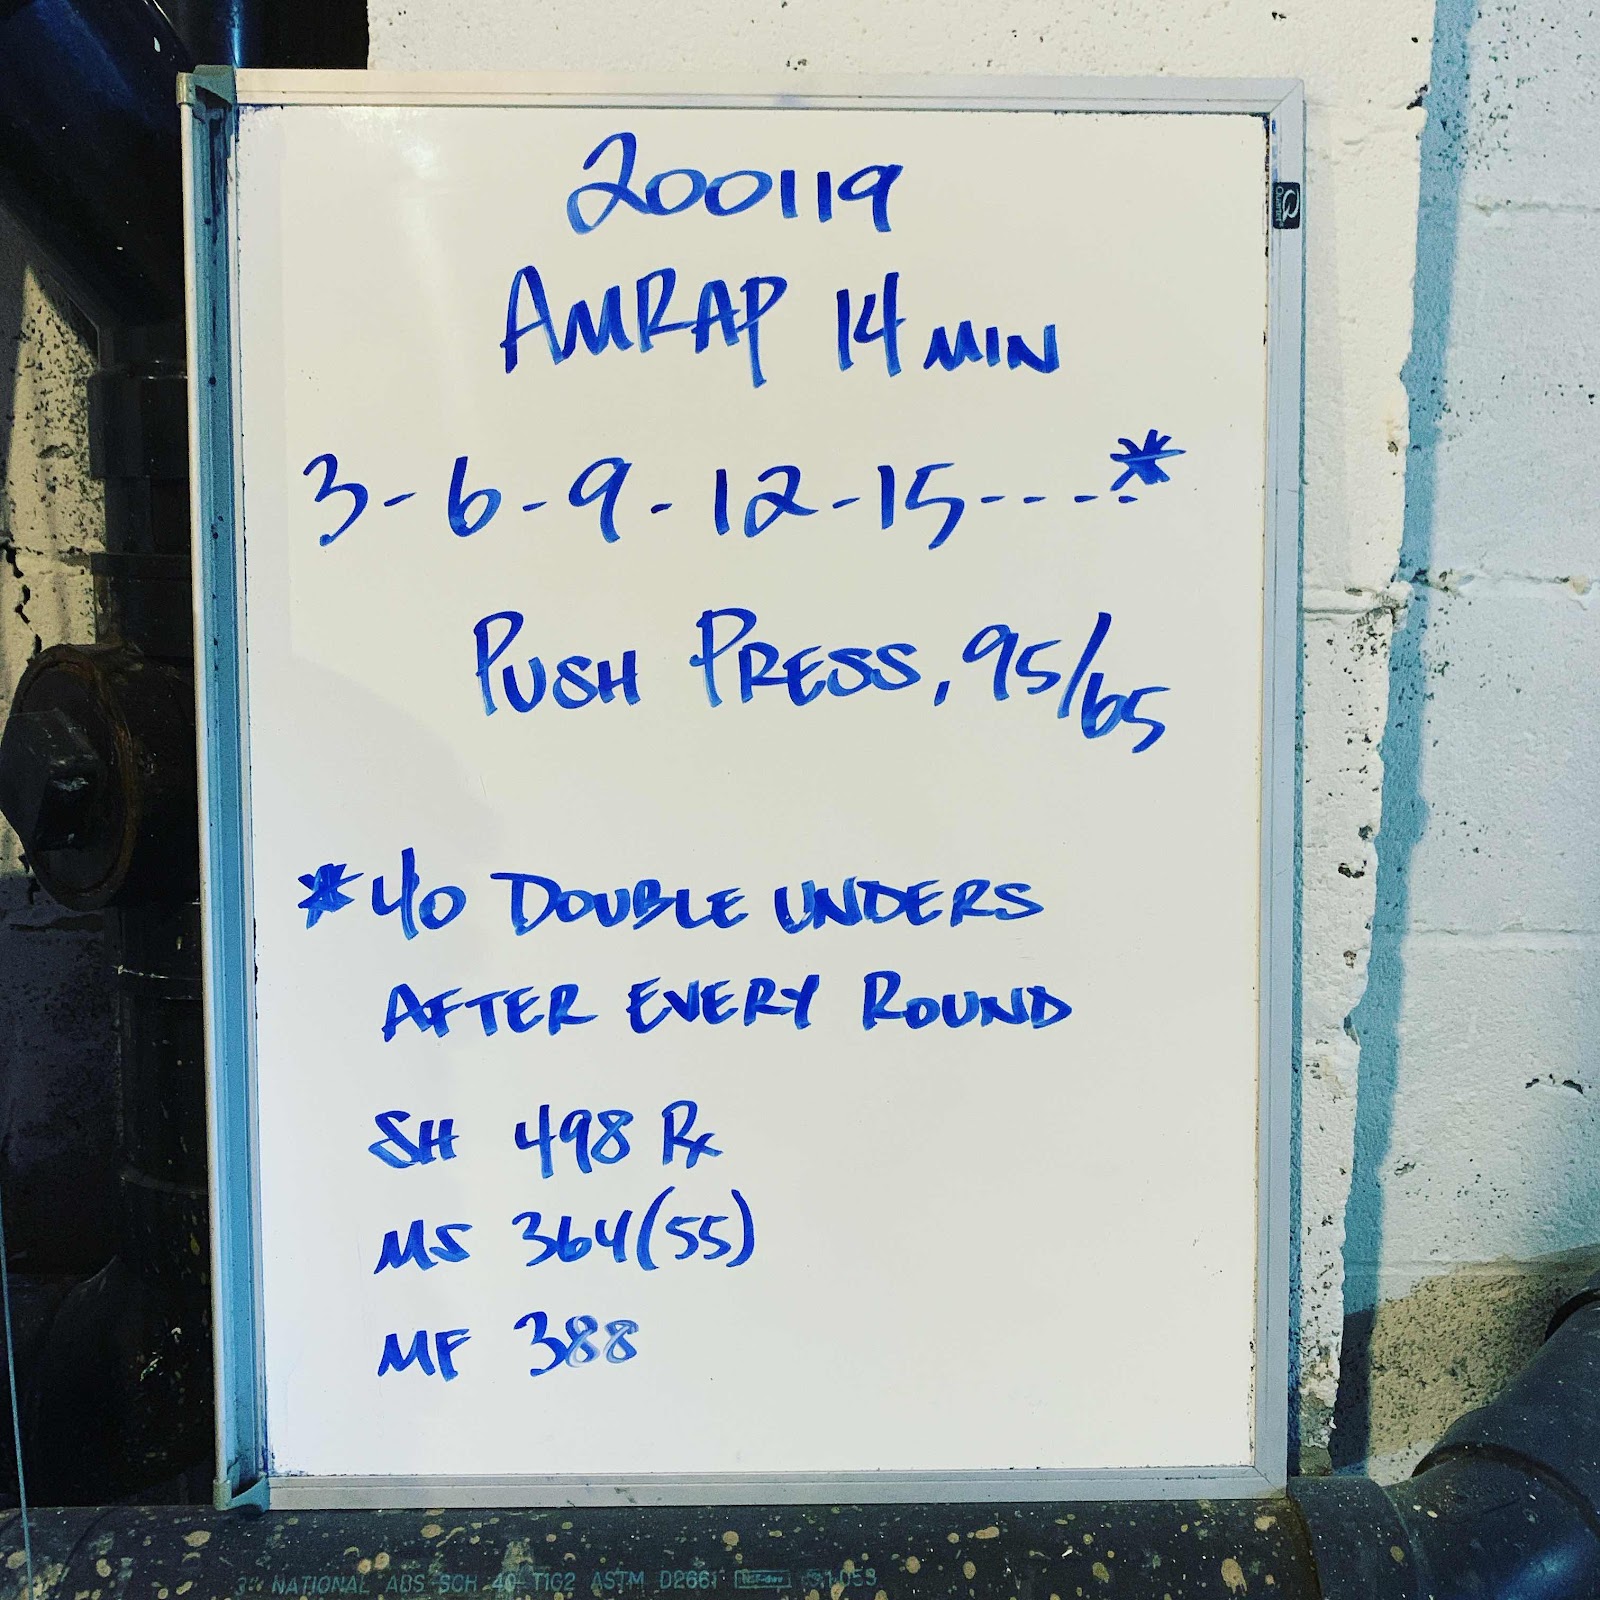 200119
AMRAP 14 MIN
3-6-9-12-15----*
PUSH PRESS, 95/65
*40 DOUBLE UNDERS
AFTER EVERY ROUND
SH 498 Rx
MS 364(55)
MF 388
Quartet
3" NATIONAL ABS SCH 40 T1G2 ASTM D2661